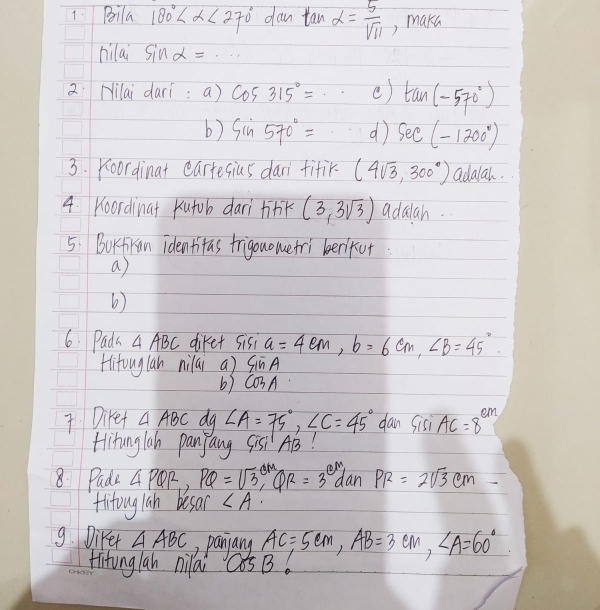 1. Bila 180° < α < 270° dan tan α = 5/√11, maka
nilai sin α = ....
2. Nilai dari : a) Cos 315° = .. c) tan (-570°)
b) Sin 570° = d) Sec (-1200°)
3. Koordinat Cartesius dari titik (4√3, 300°) adalah ..
4. Koordinat Kutub dari titik (3, 3√3) adalah ..
5. Buktikan identitas trigonometri berikut :
a)
b)
6. Pada △ ABC diket sisi a = 4 cm, b = 6 cm, ∠B = 45°.
Hitunglah nilai a) Sin A
b) Cos A.
7. Diket △ ABC dg ∠A = 75°, ∠C = 45° dan sisi AC = 8 cm
Hitunglah panjang sisi AB !
8. Pada △ PQR, PQ = √3 cm, QR = 3 cm dan PR = 2√3 cm -
Hitunglah besar ∠A.
9. Diket △ ABC, panjang AC = 5 cm, AB = 3 cm, ∠A = 60°.
Hitunglah nilai Cos B !